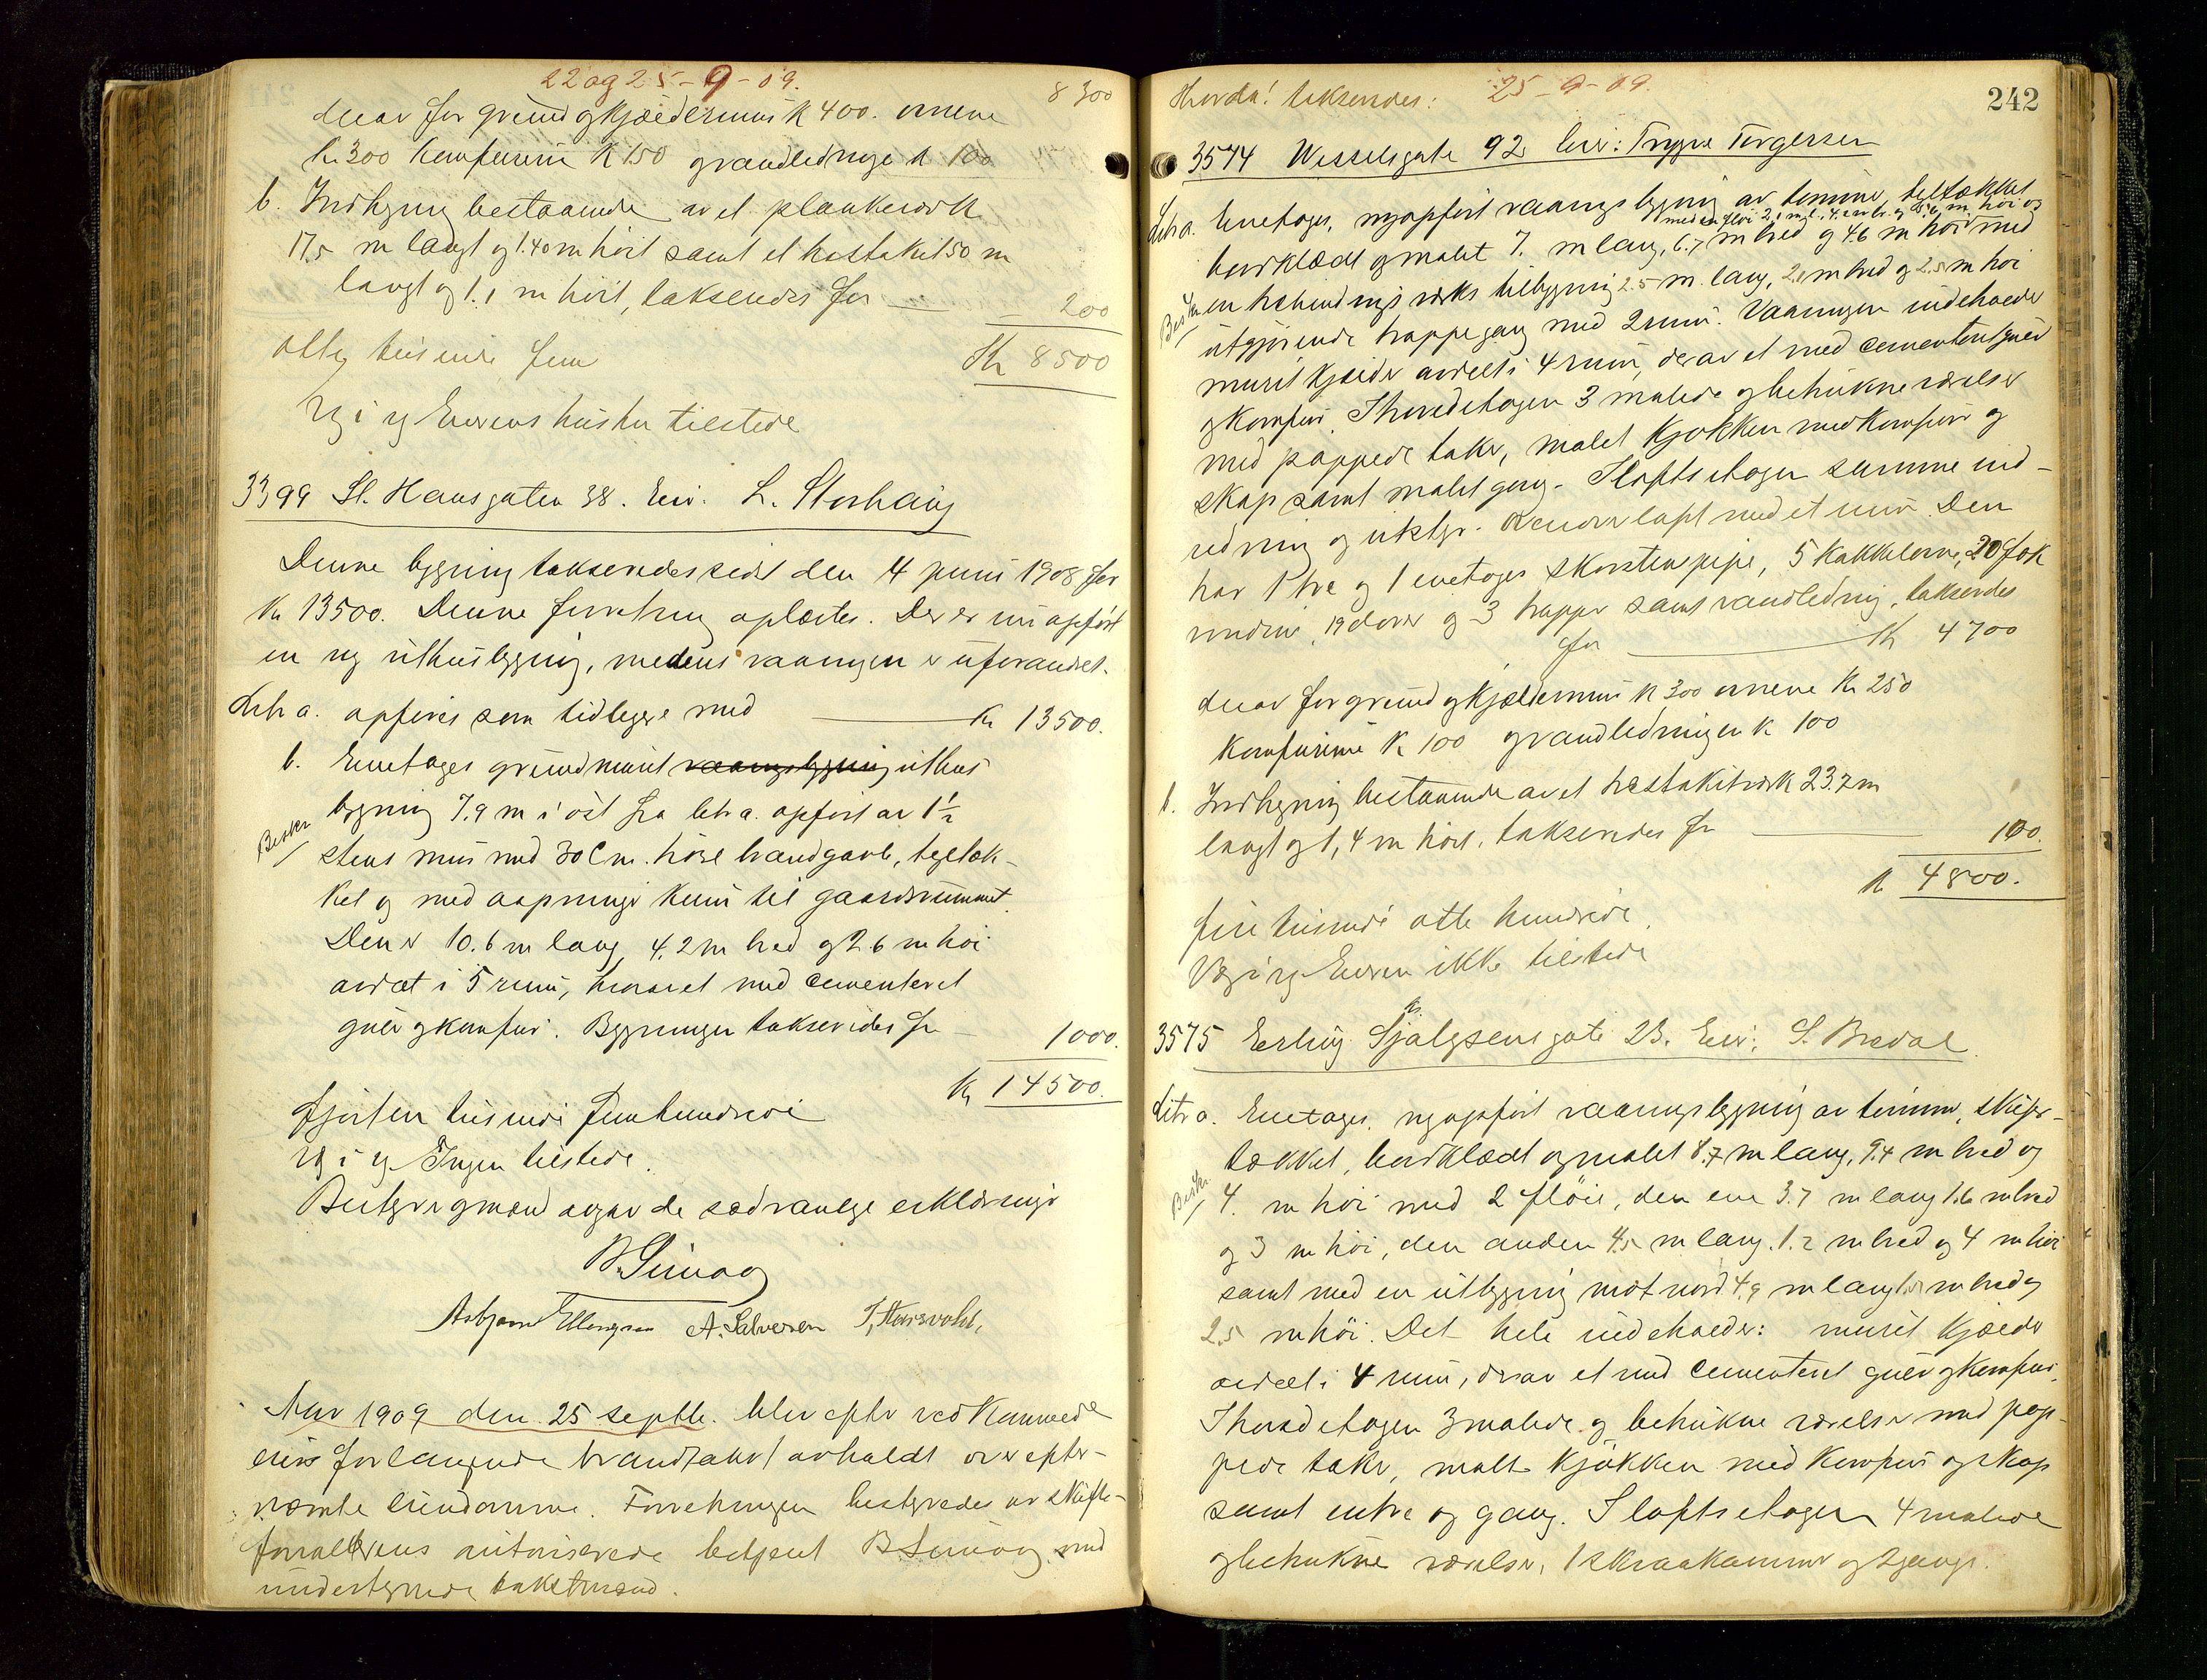 22 og 25-9-09.
8300
derav for grund og kjældermur K 400. ovnene
Kr 300 Komfurene K 150 og vandledninge K 100
b. Indhegning bestaaende av et plankeverk
17,5 m langt og 1.40 m höit samt et stakit 50 m
langt og 1.1 m höit, takseredes for — 200
otte tusinde fem Kr 8500
Eierens hustru tilstede
3399 St. Hansgaten 38. Eier: L. Storhaug
Denne bygning takseredes sidst den 4 juni 1908 for
Kr 13500. Denne forretning oplæstes. Der er nu opfört
en ny uthusbygning, medens vaaningen er uforandret.
Litr a. opföres som tidligere med — Kr 13500.
b. Enetages grundmuret vaaningsbygning uthus
bygning 7.9 m i öst fra litr a. opfört av 1½
Beskr
stens mur med 30 Cm. höie brandgavle, teglták-
ket og med aapninger kun til gaardsrummet.
Den er 10.6 m lang, 4.2 m bred og 2.6 m höi
avdelt i 5 rum, hvorav et med cementeret
gulv og komfur. Bygningen takseredes for — 1000.
Kr 14500.
fjorten tusinde femhundrede
Ingen tilstede.
Bestyrer og mænd avgav de sædvanlige erklæringer
B. Sunaag
Asbjørn Ellingsen A. Salvesen T. Horsvold,
Aar 1909 den 25 septbr. blev efter vedkommende
eiers forlangende brandtakst avholdt over efter-
nævnte eiendomme. Forretningen bestyredes av skifte-
forvalterens autoriserede betjent B Sunaag med
undertegnede takstmænd.
Hvorda! takseredes: 25-9-09.
242
3574 Wesselsgate 92 Eier: Trygve Torgersen
Litr a. Enetages, nyopfört vaaningsbygning av tömmer, tegltækket
med en flöi 2,1 m l., 4.2 m br. og 5.6 m. höi og
bordklædt og malet 7. m lang, 6.7 m bred og 4.6 m höi med
Beskr
en utbindingsverks tilbygning 2.5 m. lang, 2.1 m bred og 2.5 m höi
utgjörende trappegang med 2 rum. Vaaningen indeholder
muret kjelder avdelt i 4 rum, derav et med cementeret gulv
og komfur. I hovedetagen 3 malede og betrukne værelser
med pappede taker, malet kjökken med komfur og
skap samt malet gang. I loftsetagen samme ind-
redning og utstyr. Derover loft med et rum. Den
har 1 tre og 1 enetages skorstenspipe, 5 kakkelovne, 20 fok
vinduer, 19 dører og 3 trapper samt vandledning, takseredes
for — K 4700
derav for grund og kjældermur K 300 ovnene Kr 250
Komfurene K 100 og vandledningen K 100
b. Indhegning bestaaende av et træstakitverk 23.7 m
langt og 1,4 m höit, takseredes for — 100.
K 4800.
fire tusinde otte hundrede
Eieren ikke tilstede
3575 Erling Skjalgsens gate 23. Eier: S. Bredal
Litr a. Enetages, nyopfört vaaningsbygning av tömmer, skifer-
tækket, bordklædt og malet 8.7 m lang, 9.4 m bred og
Beskr
4. m höi med 2 flöie, den ene 3.7 m lang 1.6 m bred
og 3 m höi, den anden 4.5 m lang. 1.2 m bred og 4 m höi
samt med en utbygning mot nord 4.9 m lang m bred og
2.5 m höi. Det hele indeholder: muret kjælder
avdelt i 4 rum, derav et med cementeret gulv og komfur.
I hovedetagen 3 malede og betrukne værelser med pap-
pede taker, malt kjökken med komfur og skap
samt entre og gang. I loftsetagen 4 malede
og betrukne værelser, 1 skraakammer og 2 gange.